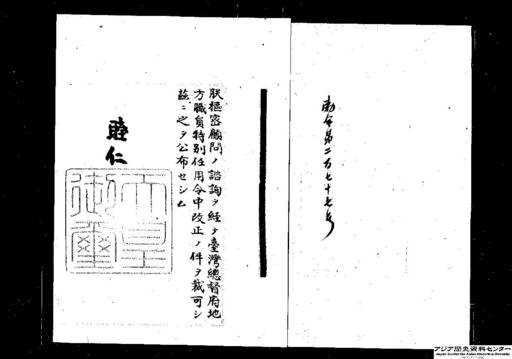 勅令第二百七十七号
朕樞密顧問ノ諮詢ヲ経テ臺灣總督府地
方職員特別任用令中改正ノ件ヲ裁可シ
茲ニ之ヲ公布セシム
睦仁
天皇御璽
アジア歴史資料センター
Japan Center for Asian Historical Records